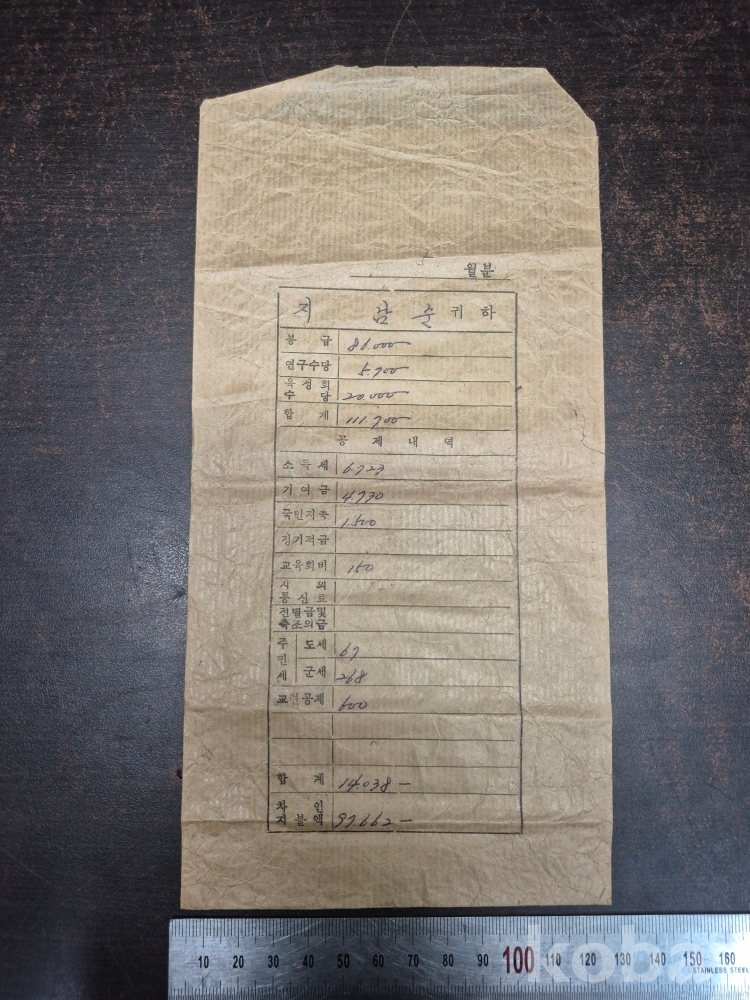 월분
지 남 준 귀하
봉급 86.000-
연구수당 5.700
육성회
수당 20.000-
합계 111.700-
공제내역
소득세 6723
기여금 4.730
국민저축 1.500
정기적금
교육회비 150
시외
통신료
전별금및
축조의금
주민세 도세 67
군세 268
교련공제 600
합계 14.038-
차인
지불액 97.662-
10 20 30 40 50 60 70 80 90 100 110 120 130 140 150 160
STAINLESS STEEL
koba